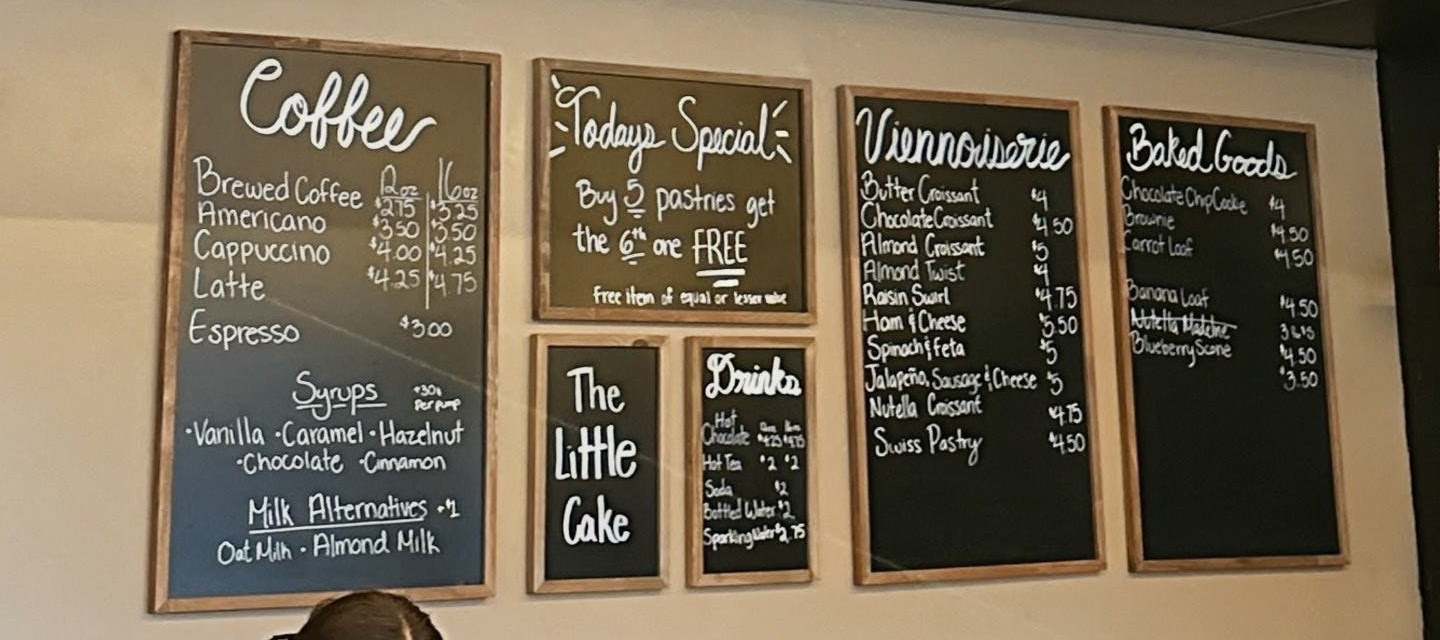 Coffee
12oz 16oz
Brewed Coffee $2.75 $3.25
Americano $3.50 $3.50
Cappuccino $4.00 $4.25
Latte $4.25 $4.75
Espresso $3.00
Syrups +30¢
Per pump
•Vanilla •Caramel •Hazelnut
•Chocolate •Cinnamon
Milk Alternatives +$1
Oat Milk • Almond Milk
Todays Special
Buy 5 pastries get
the 6th one FREE
free item of equal or lesser value
The
Little
Cake
Drinks
Hot
Chocolate $4.25 $4.75
Hot Tea $2 $2
Soda $2
Bottled Water $2
Sparkling Water $2.75
Viennoiserie
Butter Croissant $4
Chocolate Croissant $4.50
Almond Croissant $5
Almond Twist $4
Raisin Swirl $4.75
Ham & Cheese $5.50
Spinach & feta $5
Jalapeño, Sausage & Cheese $5
Nutella Croissant $4.75
Swiss Pastry $4.50
Baked Goods
Chocolate Chip Cookie $4
Brownie $4.50
Carrot Loaf $4.50
Banana Loaf $4.50
Nutella Madeline
Blueberry Scone $4.50
$3.50